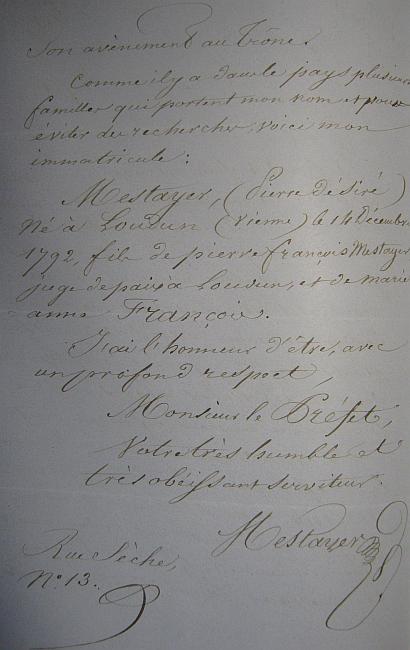 son avènement au Trône.
Comme il y a dans le pays plusieurs
familles qui portent mon nom et pour
éviter des recherches, voici mon
immatricule :
Mestayer, (Pierre désiré)
Né à Loudun (vienne) le 14 Décembre
1792, fils de pierre françois Mestayer
juge de paix à Loudun, et de marie
anne François.
J'ai l'honneur d'être, avec
un profond respect,
Monsieur le Préfet,
Votre très humble et
très obéissant serviteur.
Mestayer
Rue Sèche,
N° 13.